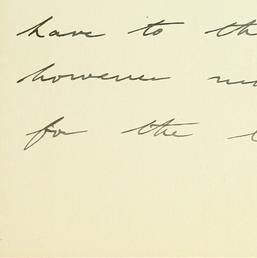 have to
however
for the